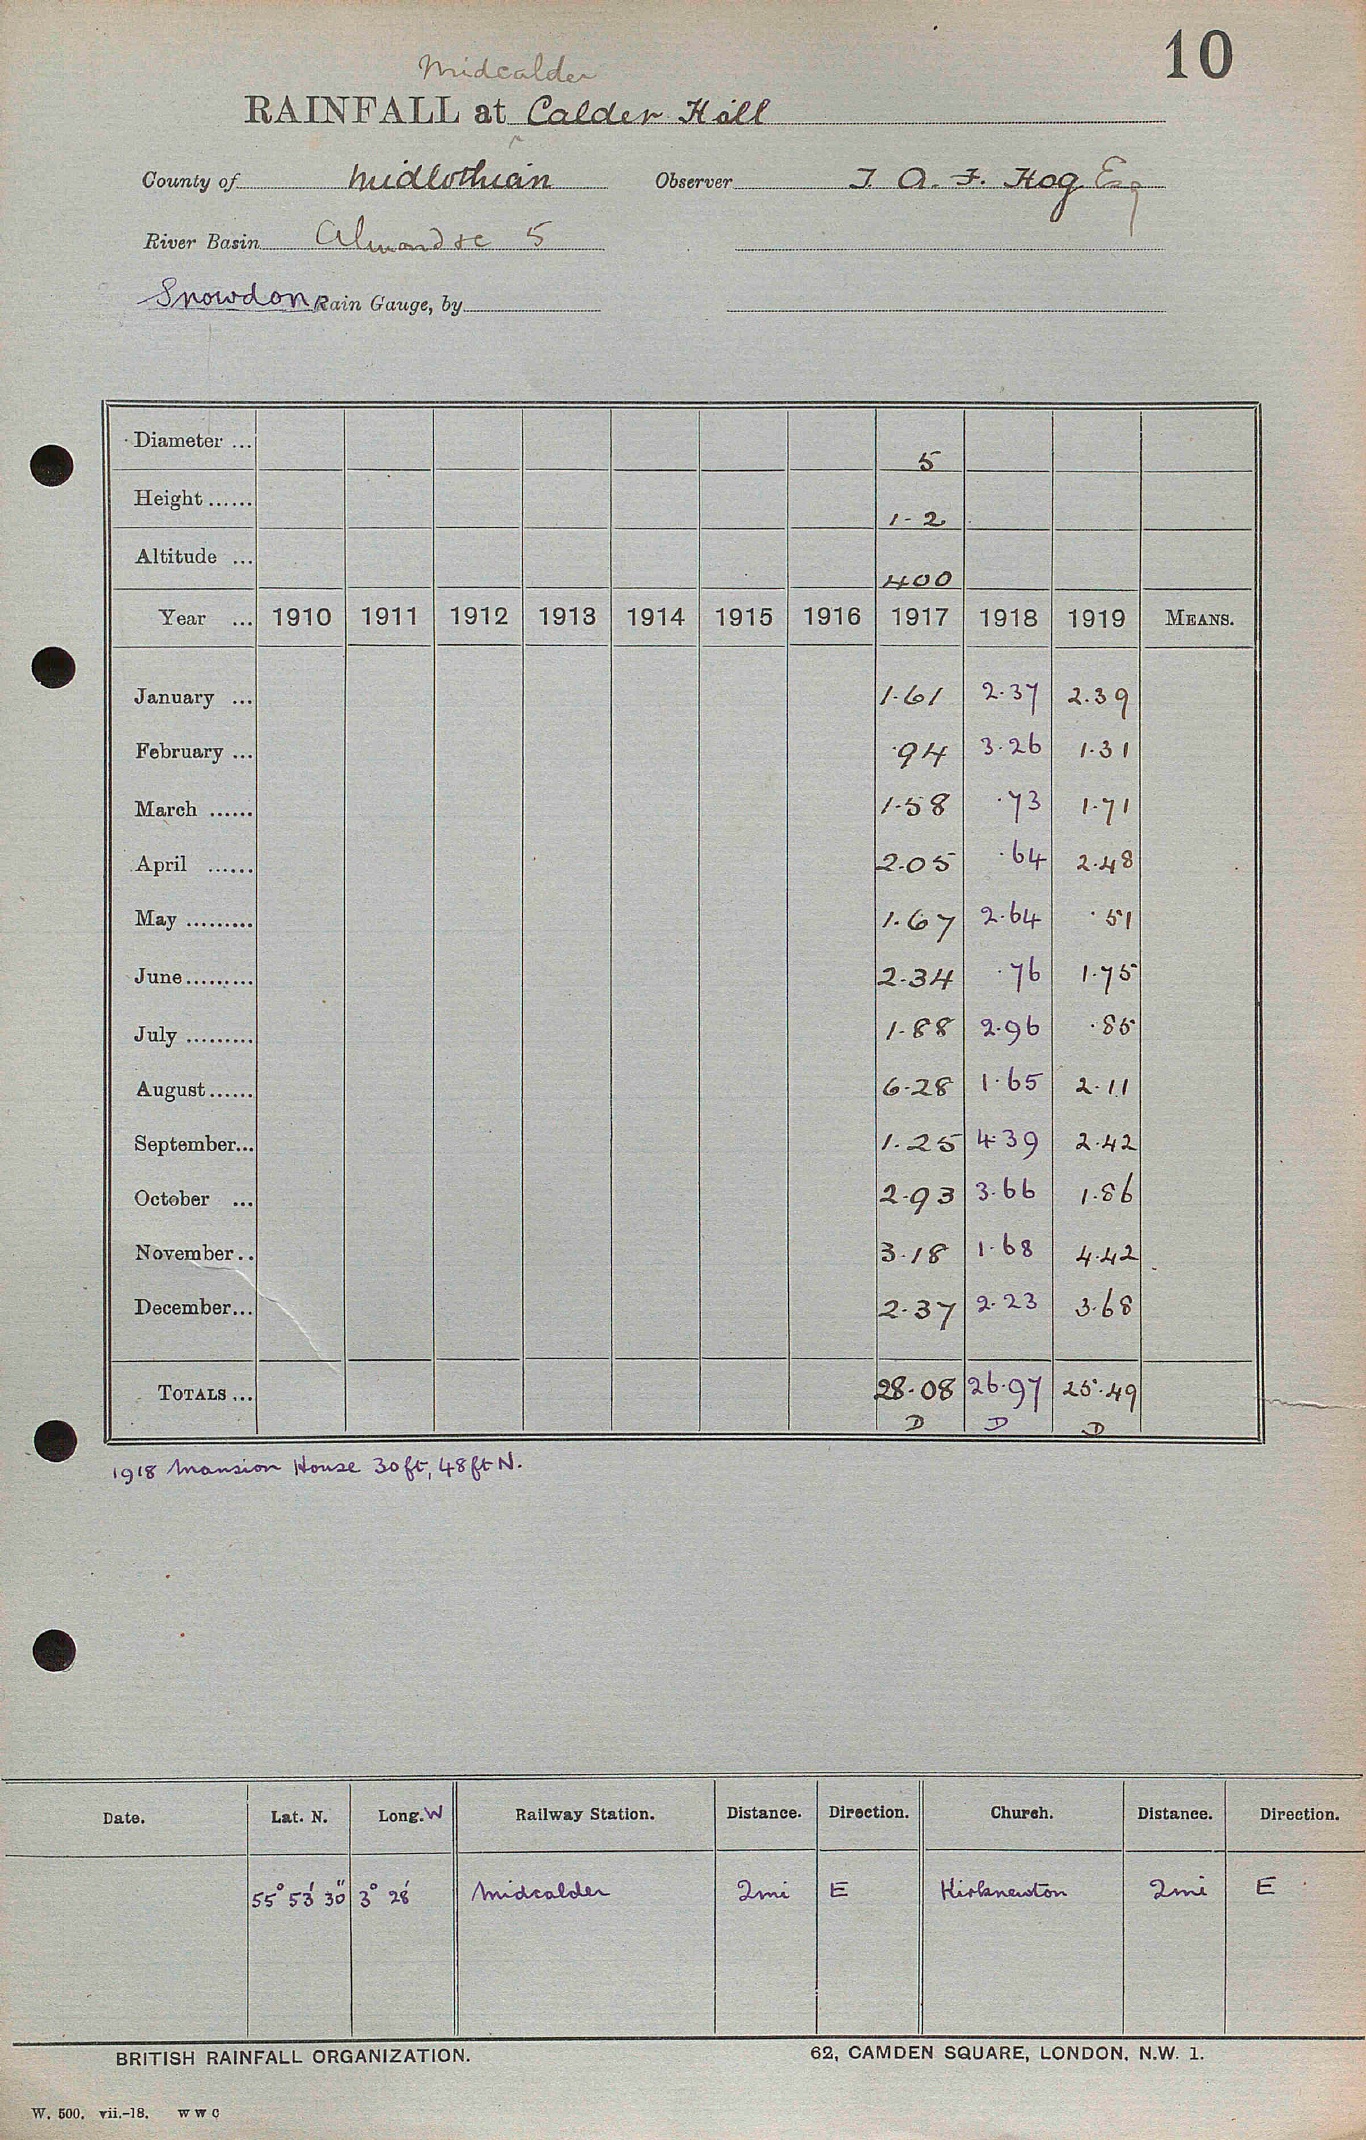 10
Midcalder
RAINFALL at Calder Hall
County of Midlothian Observer T. A. F. Hog Esq
River Basin Almond &c 5
Snowdon Rain Gauge, by
Diameter ... 5
Height ...... 1-2
Altitude ... 400
Year ... 1910 1911 1912 1913 1914 1915 1916 1917 1918 1919 MEANS.
January ... 1.61 2.37 2.39
February ... .94 3.26 1.31
March ...... 1.58 .73 1.71
April ...... 2.05 .64 2.48
May ......... 1.67 2.64 .51
June......... 2.34 .76 1.75
July ......... 1.88 2.96 .85
August...... 6.28 1.65 2.11
September... 1.25 4.39 2.42
October ... 2.93 3.66 1.86
November.. 3.18 1.68 4.42
December... 2.37 2.23 3.68
TOTALS ... 28.08 26.97 25.49
D D D
1918 Mansion House 30ft, 48ft N.
Date. Lat. N. Long. W Railway Station. Distance. Direction. Church. Distance. Direction.
55° 53' 30" 3° 28' Midcalder 2mi E Kirknewton 2mi E
BRITISH RAINFALL ORGANIZATION. 62, CAMDEN SQUARE, LONDON, N.W. 1.
W. 500. vii.-18. W W C